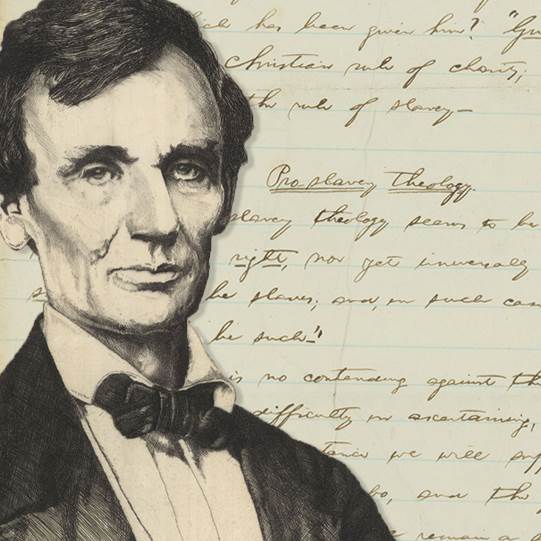 has been given him?
Christian rule of charity;
the rule of slavery—
Pro-slavery theology.
slavery theology seems to be
right, nor yet universally
be slaves; and, in such
be such."
is no contending against
difficulty in ascertaining,
we will
and the
remain a